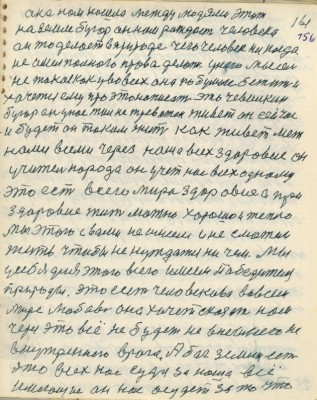 она нам нашла между людями этот
161
на земли бугор он нам рождает человека
156
он то делает в природе чего человек никогда
не имел полного права делать у него мысел
не такая как у во всех она по бумаге бегит и
хочется ему про это написать эта чевилкин
бугор он уже тих не тревожен живет он сейчас
и будет он таким жить как живет меж
нами всеми через наше всех здоровие он
учител народа он учит нас всех одному
это ест всего мира здоровия а при
здоровие жить можно хорошо и тепло
мы этого с вами не имеем и не сможем
жить чтобы не нуждатся ни чем. Мы
у себя для этого всего имеем Победителя
природы. это ест человекова во всем
мире любовь она хочет сказать нам
через это всё не будет не внешнего не
внутренного врага. А бог земли ест
это всех нас судья за наше всё
имеющие он нас осудит за то что